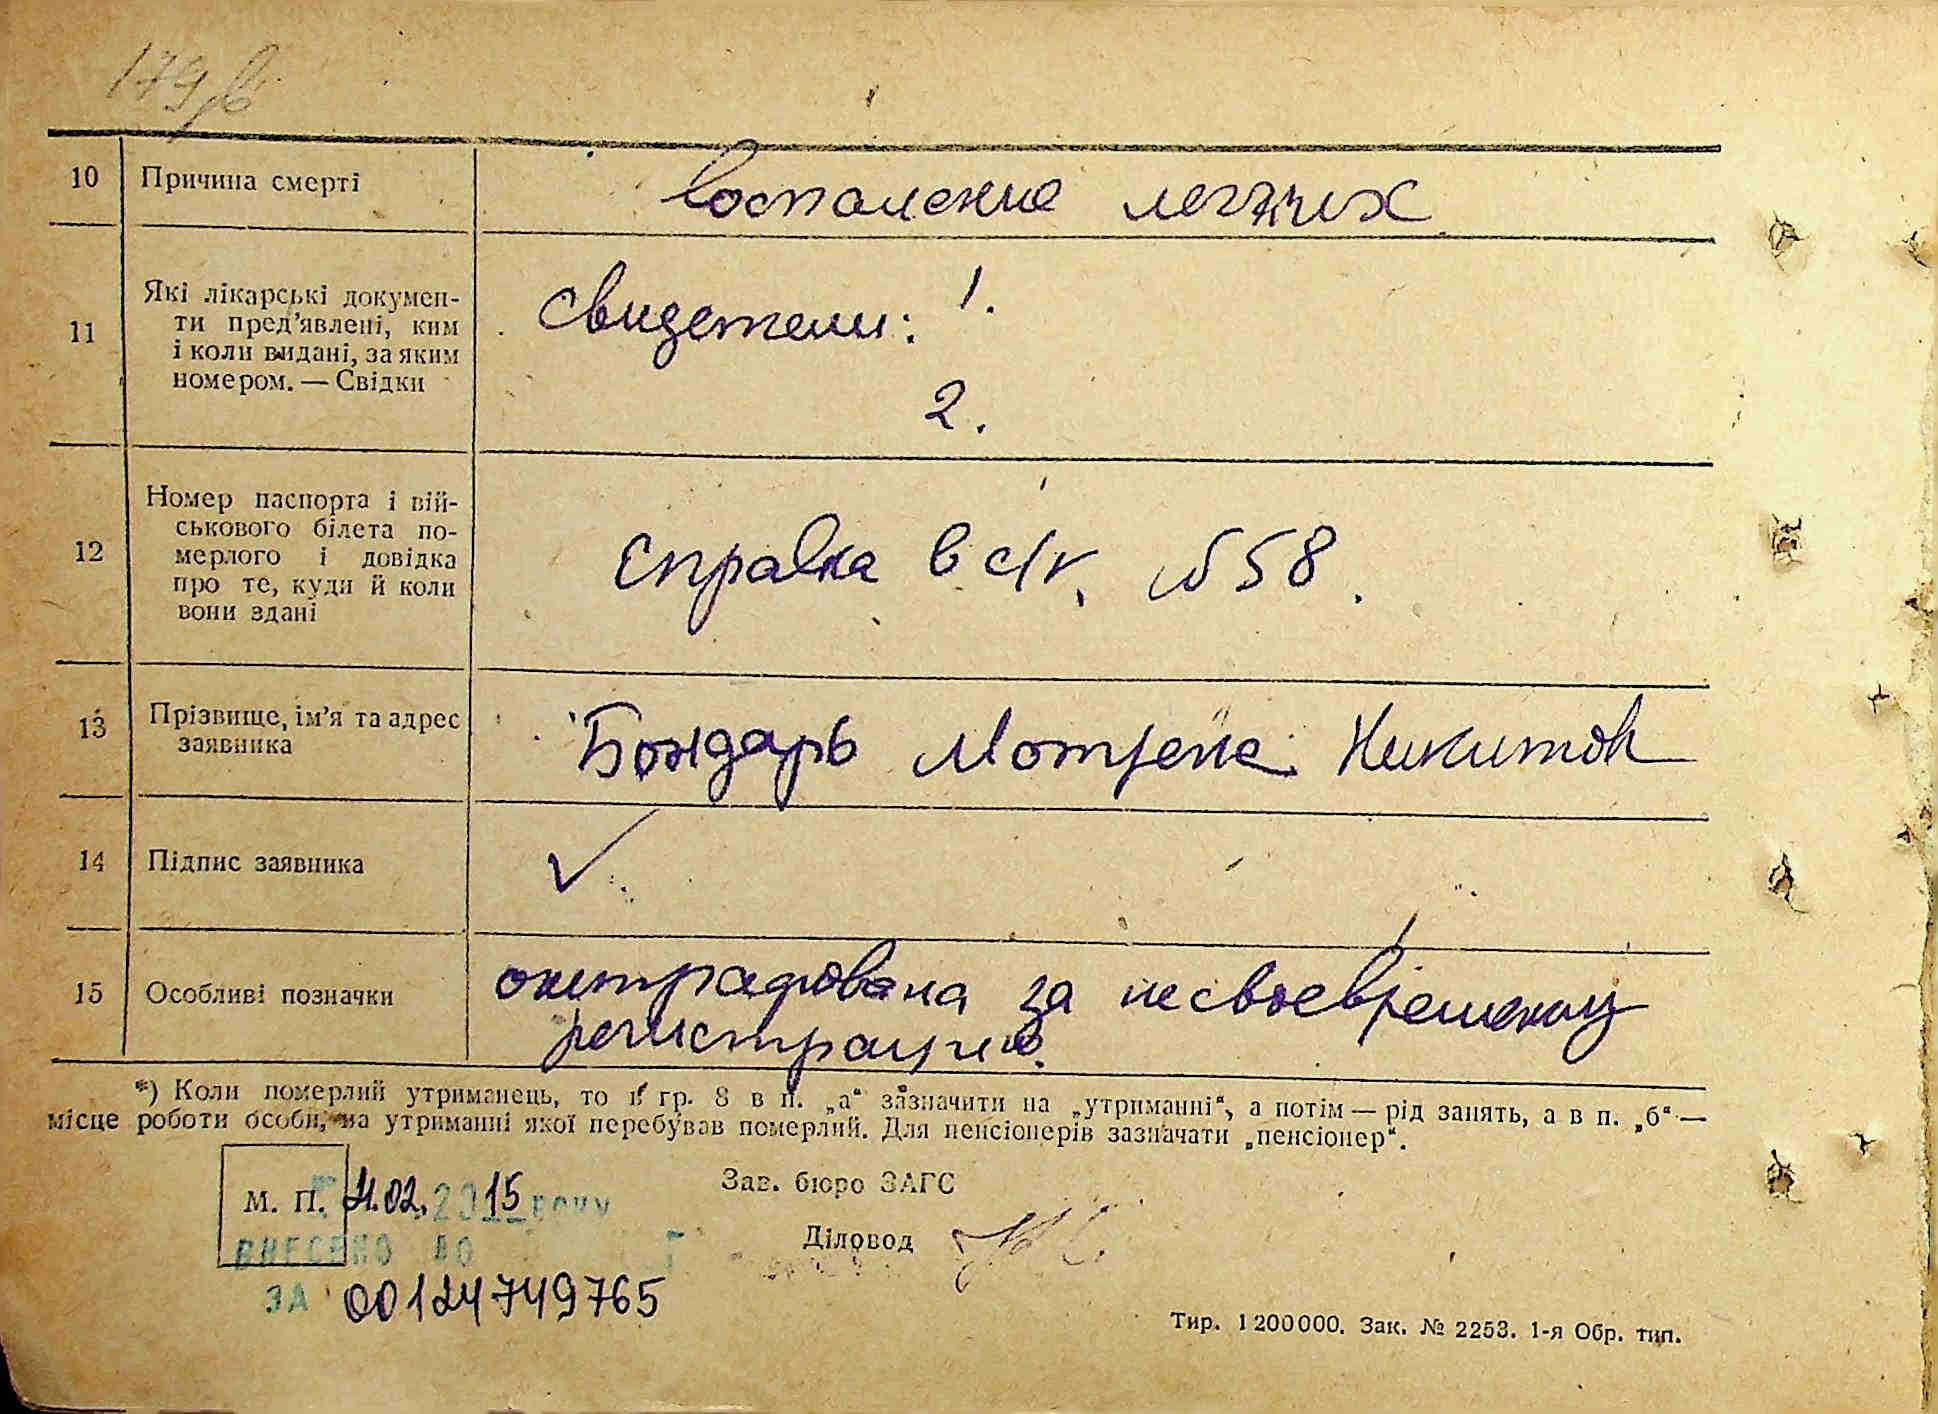 179
10 Причина смерті воспаление легких
11 Які лікарські документи
ти пред’явлені, ким
і коли видані, за яким
номером. — Свідки
свидетели: 1.
2.
12 Номер паспорта і вій-
ськового білета по-
мерлого і довідка
про те, куди й коли
вони здані
справка в с/к №58.
13 Прізвище, ім’я та адрес
заявника
Бондарь Мотрена Никитов
14 Підпис заявника
15 Особливі позначки
оштрафована за несвоевременную
регистрацию.
*) Коли померлий утриманець, то в гр. 8 в п. „а“ зазначити на „утриманні“, а потім — рід занять, а в п. „б“ —
місце роботи особи, на утриманні якої перебував померлий. Для пенсіонерів зазначати „пенсіонер“.
Зав. бюро ЗАГС
М. П. 4.02.2015 року
Діловод
ВНЕСЕНО ДО
ЗА 00124749765
Тир. 1200000. Зак. № 2253. 1-я Обр. тип.